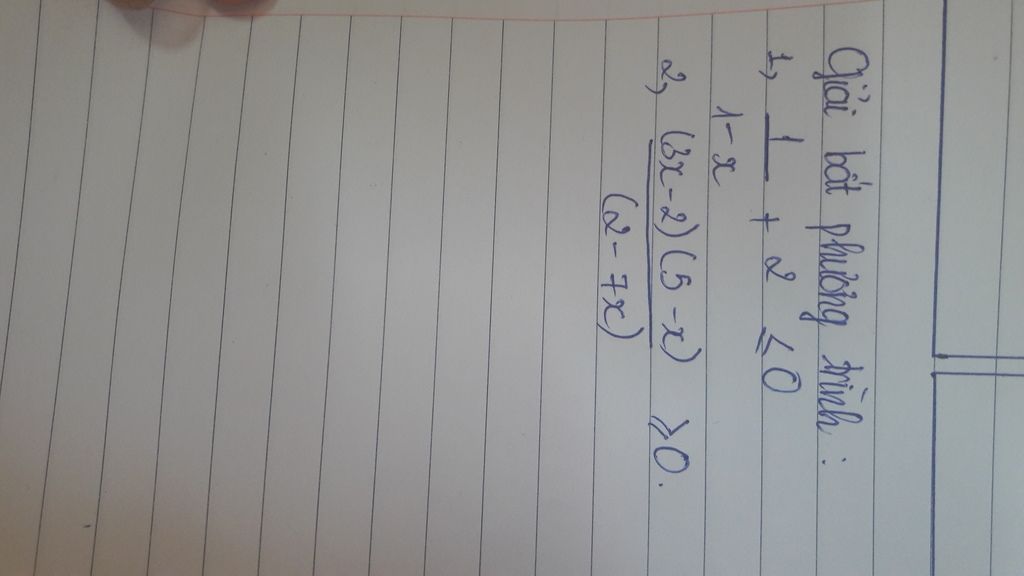 Giải bất phương trình :
1, 1/(1-x) + 2 ≤ 0
2, (3x-2)(5-x)/(2-7x) ≥ 0.